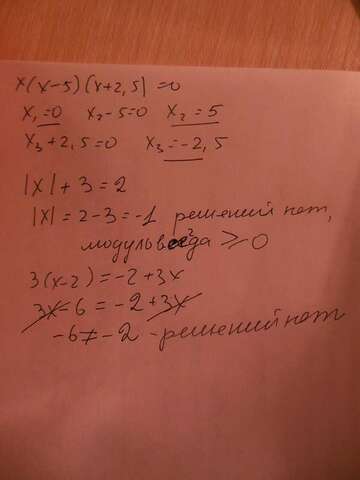 x(x-5)(x+2,5)=0
x₁=0 x₂-5=0 x₂=5
x₃+2,5=0 x₃=-2,5
|x|+3=2
|x|=2-3=-1 решений нет,
модуль всегда ⩾0
3(x-2)=-2+3x
3x-6=-2+3x
-6≠-2 -решений нет